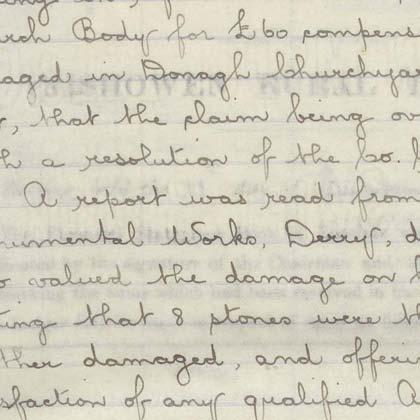 rch Body for £60 compens
aged in Donagh Churchyar
, that the claim being ov
h a resolution of the Co.
A report was read from
numental Works, Derry, d
o valued the damage on
ting that 8 stones were th
ther damaged, and offeri
sfaction of any qualified